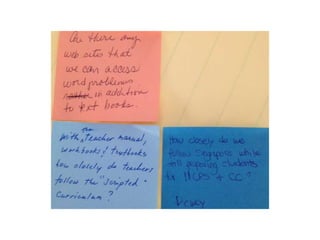 Are there any
web sites that
we can access
word problems
in addition
to text books.
With the teacher manual,
workbooks & textbooks
how closely do teachers
follow the "scripted"
Curriculum?
How closely do we
follow Singapore while
still preparing students
for MCPS + CC?
Vicky